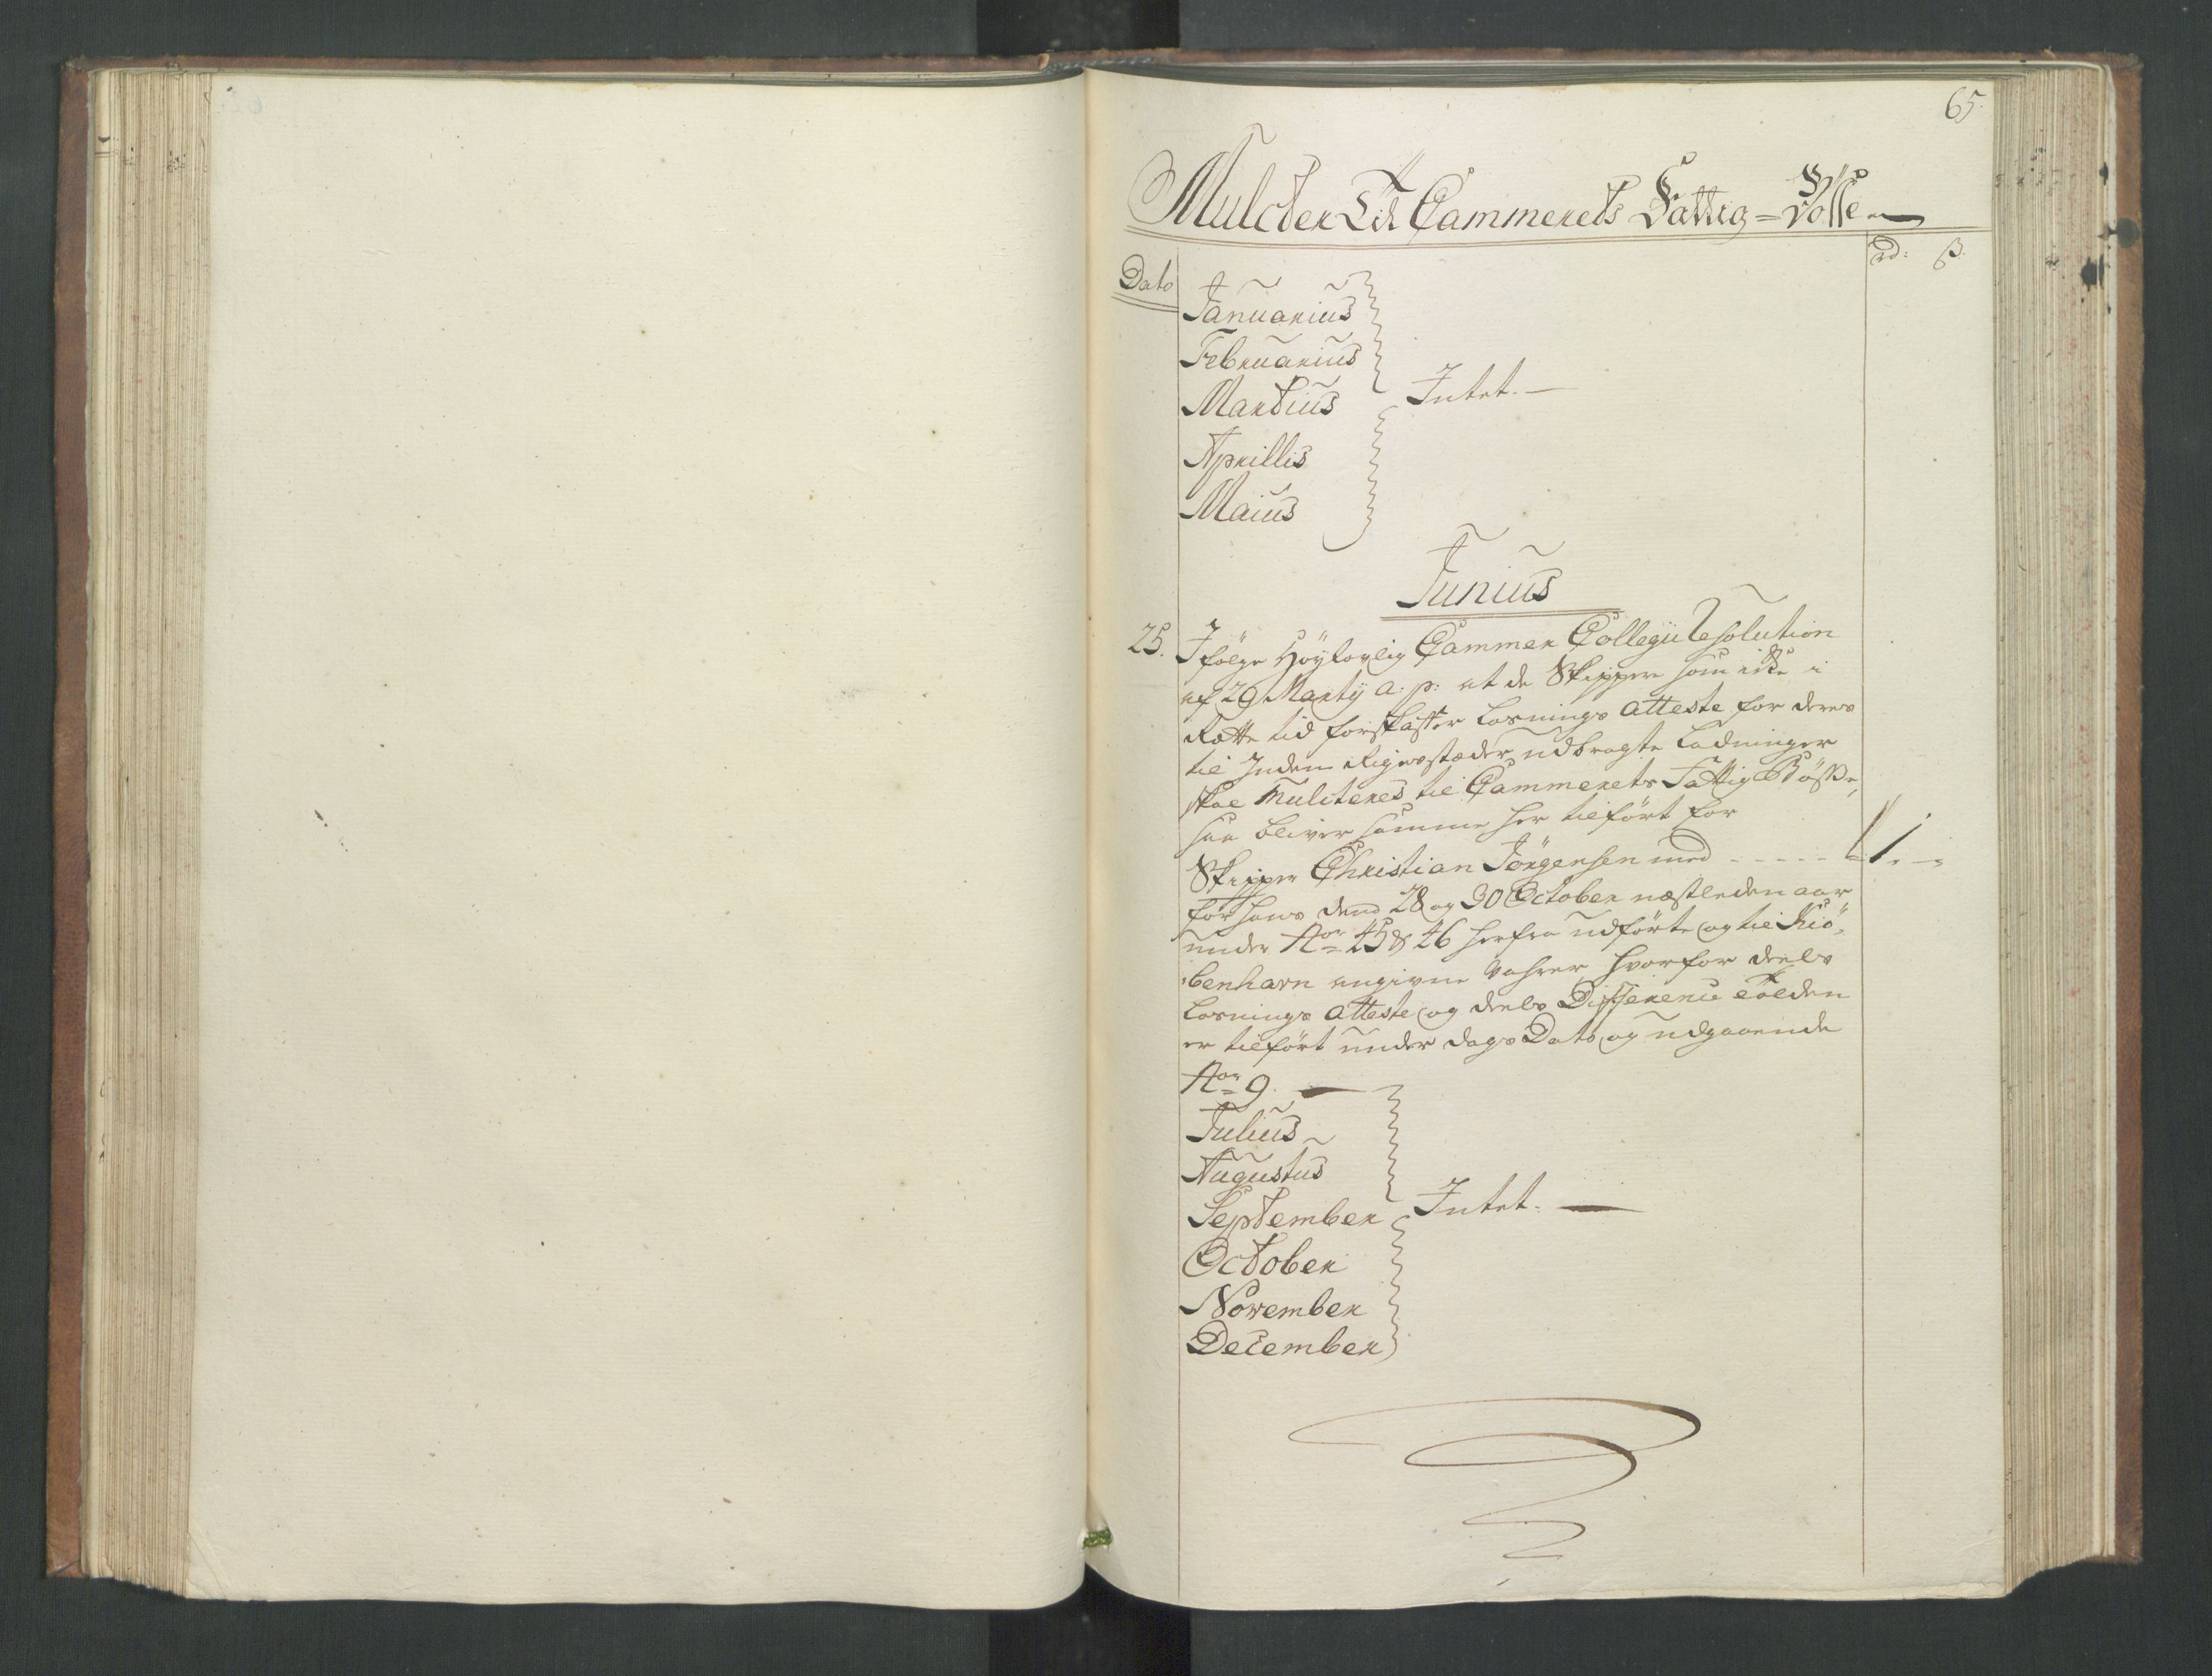 65.
Mulcter Til Cammerets Fattig=Bösse
rd: ß.
Dato
Januarius
Februarius
Martius Intet.
Aprillis
Maius
Junius
25. I fölge Höylovlig Cammer Collegii Resolution
af 29 Martij a: p: at de Skippere som icke i
Rætte tid forskaffer Losnings Atteste for deres
til Inden Rigesstæder udbragte Ladninger
skal Mulcteres til Cammerets Fattig Bösse,
saa bliver samme her tilført for
Skipper Christian Jörgensen med - - - - - 1. -
for hans dend 28 og 30 October næstleden aar
under No 45 & 46 herfra udførte og til Kiö,
benhavn angivne Vahrer, hvorfor deels
Losnings Atteste og deels Difference Tolden
er tilført under dags Dato og udgaaende
No 9.
Julius
Augustus
September Intet.
October
November
December